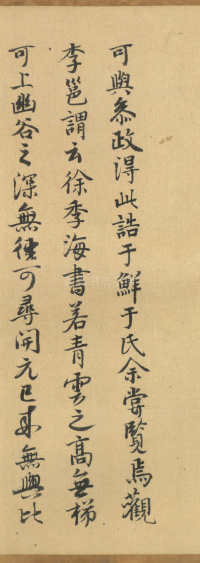 可與叅政得此誥于鮮于氏余嘗覧焉觀
李邕謂云徐季海書若青雲之高無梯
可上幽谷之深無徑可尋開元已來無與比